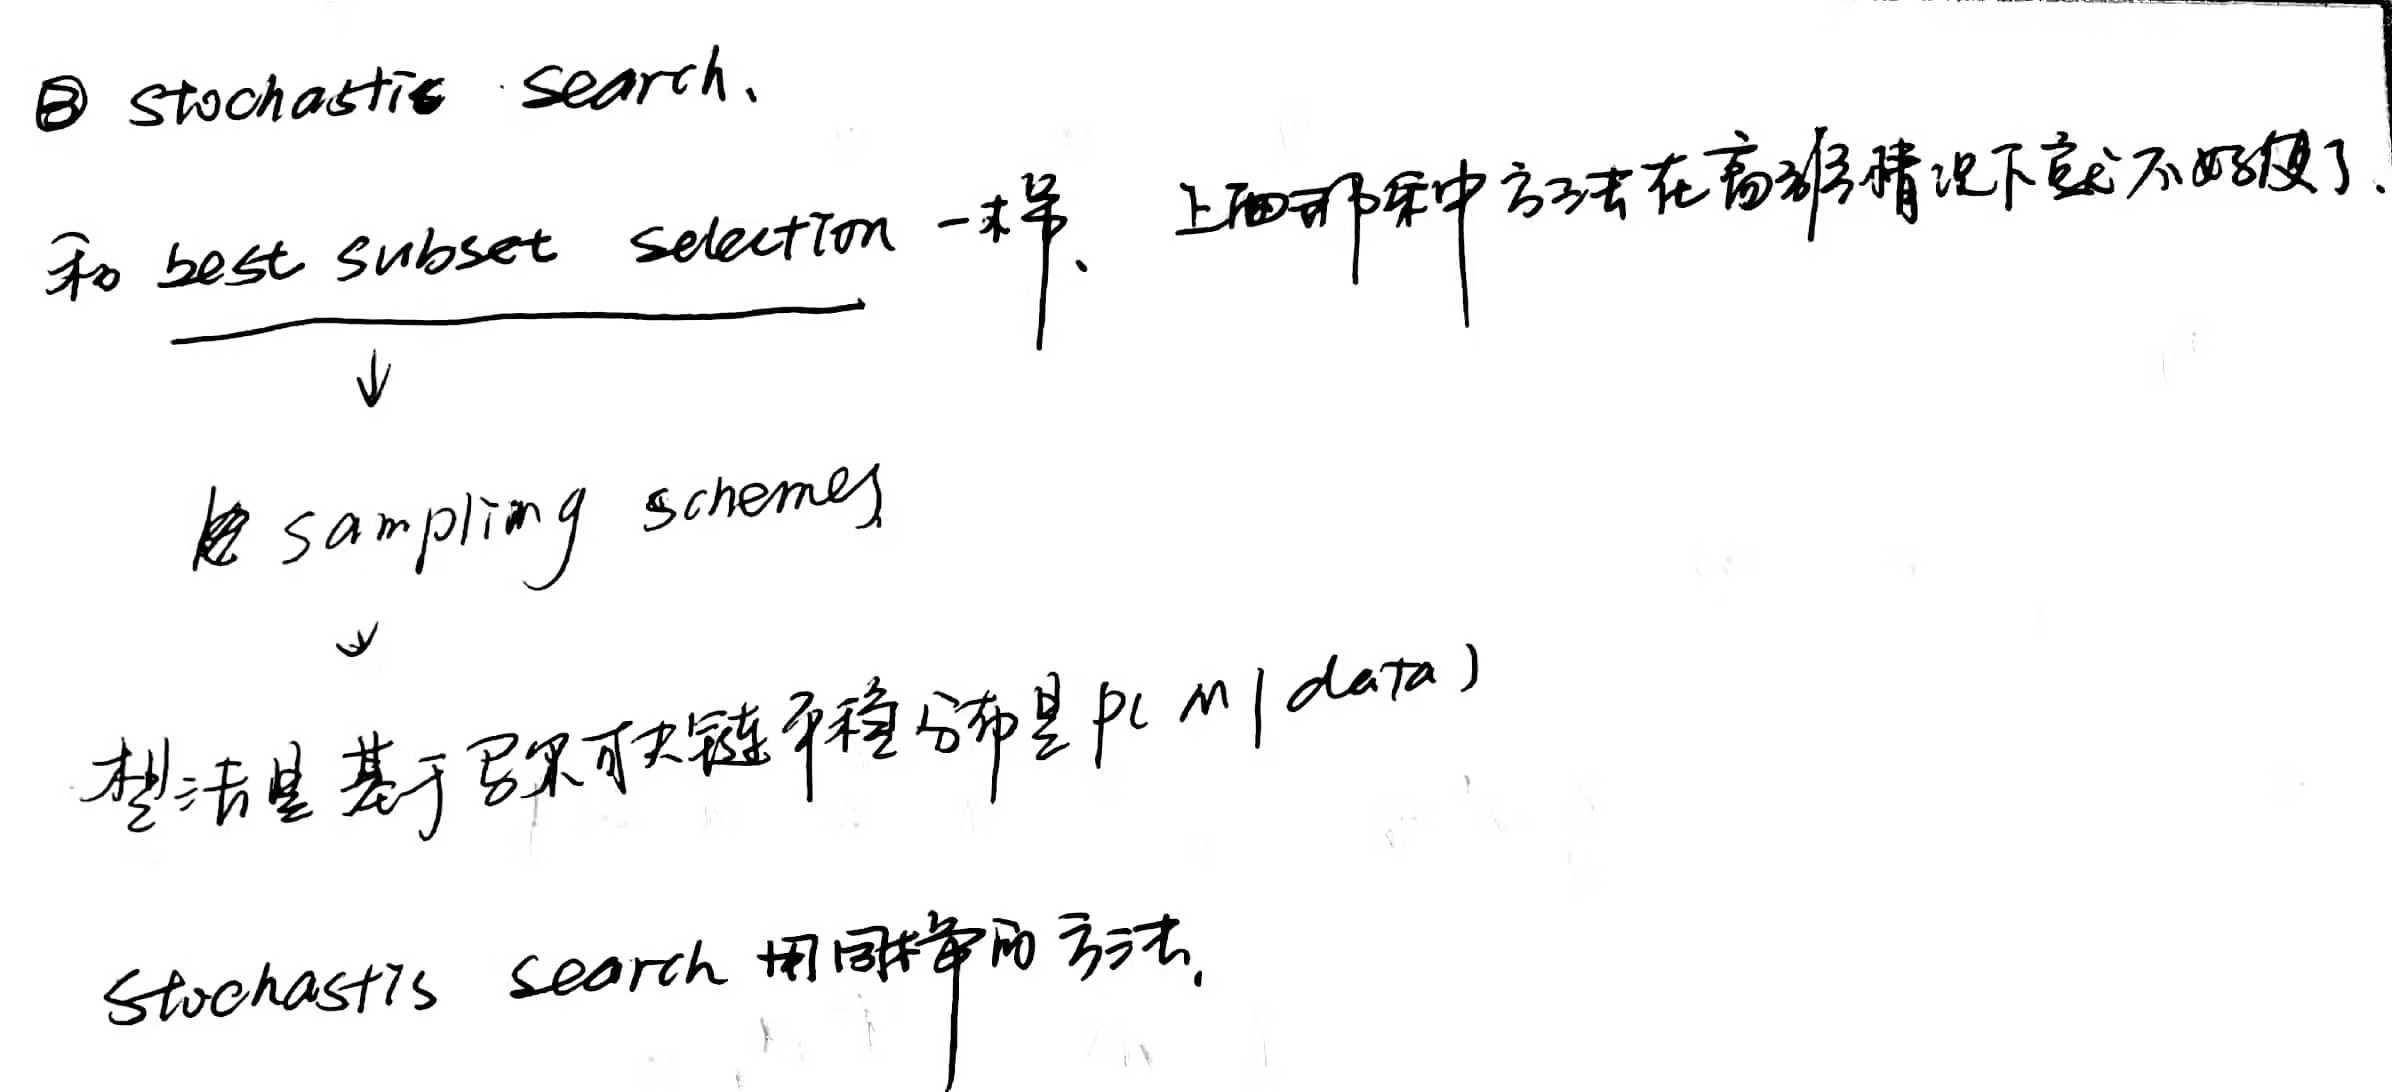 ③ stochastic search、
和 best subset selection 一样、 上面那种方法在高维情况下就不好使了、
↓
sampling schemes
↓
想法是基于马尔可夫链平稳分布是 p( M | data )
stochastis search 用同样的方法、